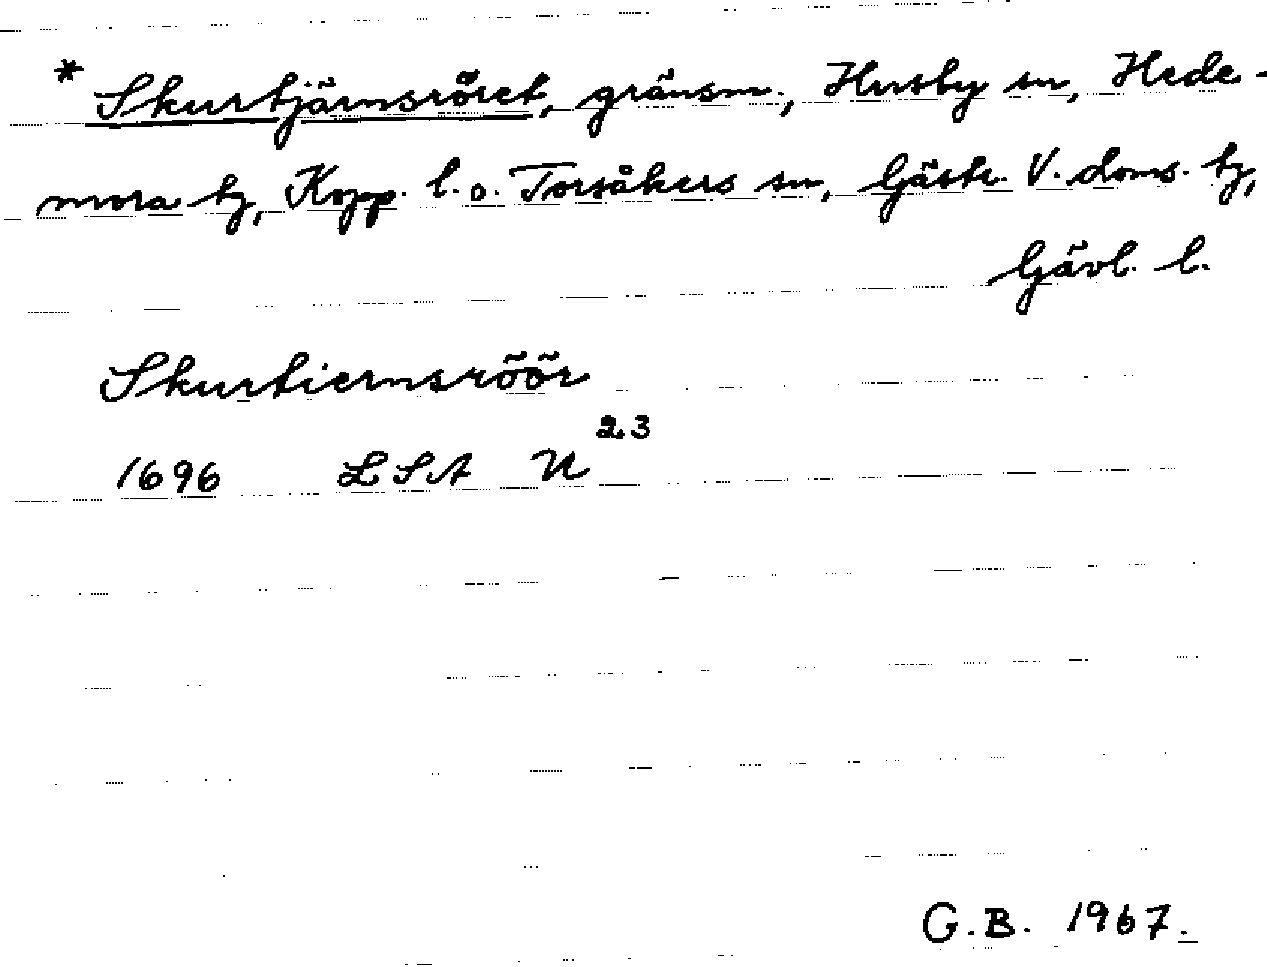 * Skurtjärnsröret, gränsm., Husby sn, Hede-
mora tg, Kopp. l. o. Torsåkers sn, Gästr. V. doms. tg,
Gävl. l.
Skurtiernsröör
1696 LSA U 23
G.B. 1967.